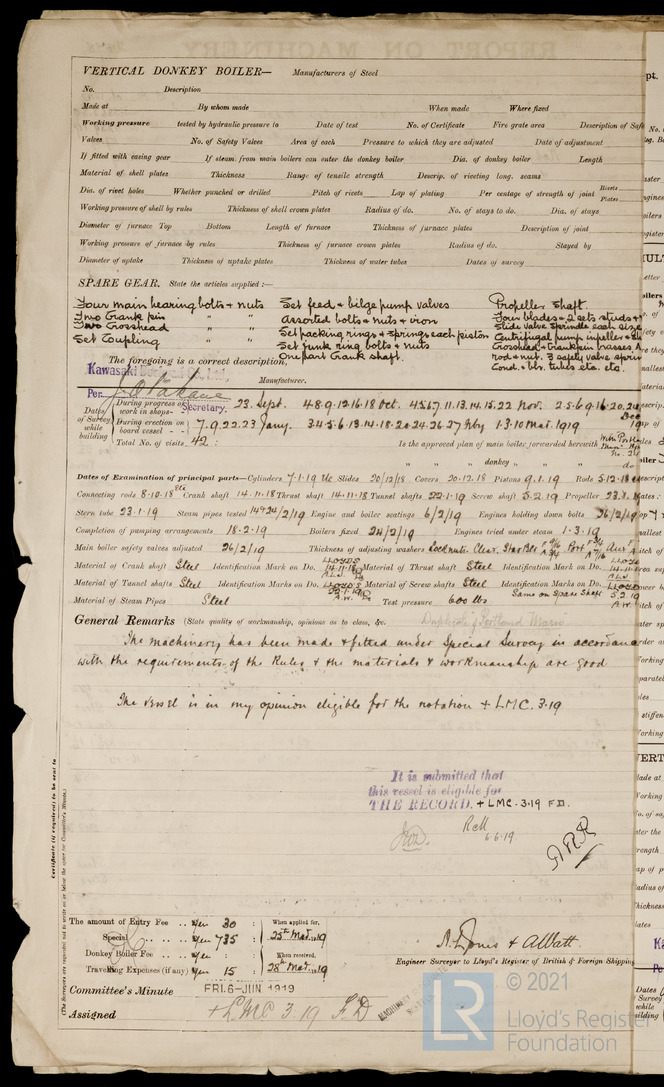 VERTICAL DONKEY BOILER— Manufacturers of Steel
No. Description
Made at By whom made When made Where fixed
Working pressure tested by hydraulic pressure to Date of test No. of Certificate Fire grate area Description of Safe
Valves No. of Safety Valves Area of each Pressure to which they are adjusted Date of adjustment
If fitted with easing gear If steam from main boilers can enter the donkey boiler Dia. of donkey boiler Length
Material of shell plates Thickness Range of tensile strength Descrip. of riveting long. seams
Dia. of rivet holes Whether punched or drilled Pitch of rivets Lap of plating Per centage of strength of joint Rivets Plates
Working pressure of shell by rules Thickness of shell crown plates Radius of do. No. of stays to do. Dia. of stays
Diameter of furnace Top Bottom Length of furnace Thickness of furnace plates Description of joint
Working pressure of furnace by rules Thickness of furnace crown plates Radius of do. Stayed by
Diameter of uptake Thickness of uptake plates Thickness of water tubes Dates of survey
SPARE GEAR. State the articles supplied :—
Four main bearing bolts + nuts Set feed + bilge pump valves Propeller shaft
Two Crank pin " " Assorted bolts + nuts + iron Four blades + 2 sets studs +
Two Crosshead " " Set packing rings + springs each piston Slide valve spindle each size
Set Coupling " " Set junk ring bolts + nuts Centrifugal pump impeller +
One part Crank shaft. Crosshead + crankpin brasses
rod + nut. 3 safety valve
Cond. + blr. tubes etc. etc.
The foregoing is a correct description,
Kawasaki Dockyard Co., Ltd. Manufacturer.
Per
Secretary.
Dates of Survey while building
During progress of work in shops - - 23. Sept. 4.8.9.12.16.18 Oct. 4.5.6.7.11.13.14.15.22 Nov. 2.5.6.9.16.20.24 Dec
During erection on board vessel - - - 7.9.22.23 Jany. 3.4.5.6.13.14.18.20.24.26.27 Feby 1.3.10 Mar. 1919
Total No. of visits 42 : Is the approved plan of main boiler forwarded herewith
" " " donkey " " " do
Dates of Examination of principal parts—Cylinders 7.1.19 Slides 20/12/18 Covers 20.12.18 Pistons 9.1.19 Rods 5.12.18
Connecting rods 8.10.18 Crank shaft 14.11.18 Thrust shaft 14.11.18 Tunnel shafts 22.1.19 Screw shaft 5.2.19 Propeller
Stern tube 23.1.19 Steam pipes tested 14 & 24/2/19 Engine and boiler seatings 6/2/19 Engines holding down bolts 26/2/19
Completion of pumping arrangements 18.2.19 Boilers fixed 24/2/19 Engines tried under steam 1.3.19
Main boiler safety valves adjusted 26/2/19 Thickness of adjusting washers
Material of Crank shaft Steel Identification Mark on Do. LLOYDS 14.11.18 Material of Thrust shaft Steel Identification Mark on Do.
Material of Tunnel shafts Steel Identification Marks on Do. LLOYDS Material of Screw shafts Steel Identification Marks on Do. LLOYDS 5.2.19
Material of Steam Pipes Steel Test pressure 600 lbs Same on Spare Shaft
General Remarks (State quality of workmanship, opinions as to class, &c.
The machinery has been made + fitted under Special Survey in accordance
with the requirements of the Rules + the materials + workmanship are good
The vessel is in my opinion eligible for the notation + LMC. 3.19
It is submitted that
this vessel is eligible for
THE RECORD. + LMC. 3.19 F.D.
6.6.19
ARR
Certificate (if required) to be sent to
(The Surveyors are requested not to write on or below the space for Committee's Minute.)
The amount of Entry Fee .. Yen 30 : When applied for,
Special .. .. .. Yen 735 : 25th Mar. 1919
Donkey Boiler Fee .. .. Yen : When received,
Travelling Expenses (if any) Yen 15 : 28th Mar. 1919
Engineer Surveyor to Lloyd's Register of British & Foreign Shipping
Committee's Minute FRI. 6-JUN 1919
Assigned + LMC 3.19 F.D
LR
© 2021
Lloyd's Register
Foundation